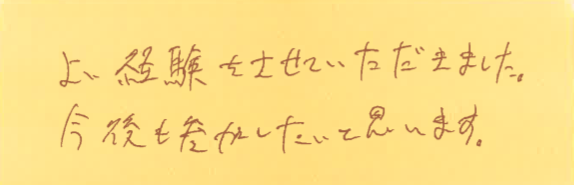 よい経験をさせていただきました。
今後も参加したいと思います。